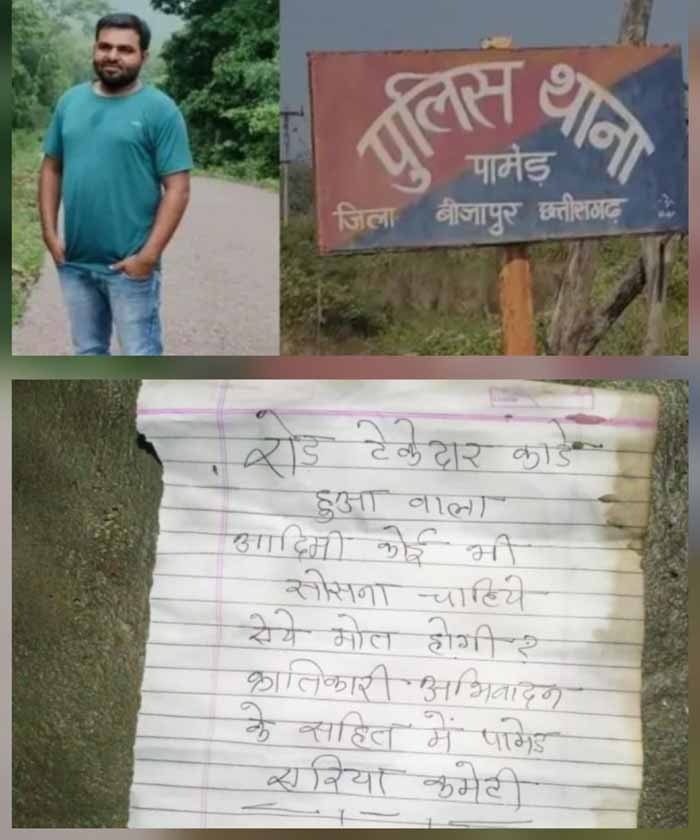 पुलिस थाना
पामेड़
जिला बीजापुर छत्तीसगढ़
रोड ठेकेदार काडे
हुआ वाला
आदिमी कोई भी
सोसना चाहिये
सेये मोत होगी ?
क्रातिकारी अभिवादन
के सहित में पामेड
सरिया कमेटी